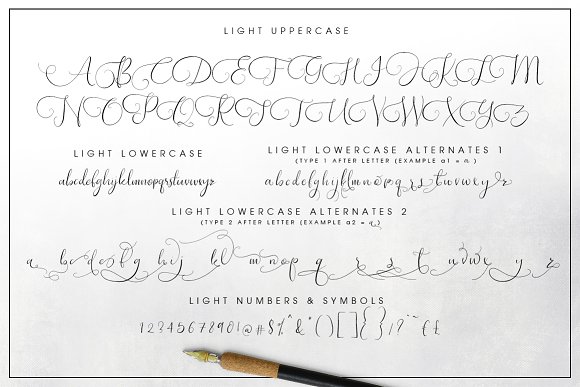 LIGHT UPPERCASE
A B C D E F G H I J K L M
N O P Q R S T U V W X Y Z
LIGHT LOWERCASE
abcdefghijklmnopqrstuvwxyz
LIGHT LOWERCASE ALTERNATES 1
(TYPE 1 AFTER LETTER (EXAMPLE a1 = a)
abcdefghijklmnopqrstuvwxyz
LIGHT LOWERCASE ALTERNATES 2
(TYPE 2 AFTER LETTER (EXAMPLE a2 = a)
a b c d e f g h i j k l m n o p q r s t u v w x y z
LIGHT NUMBERS & SYMBOLS
1234567890!@#$%^&*()[]{}